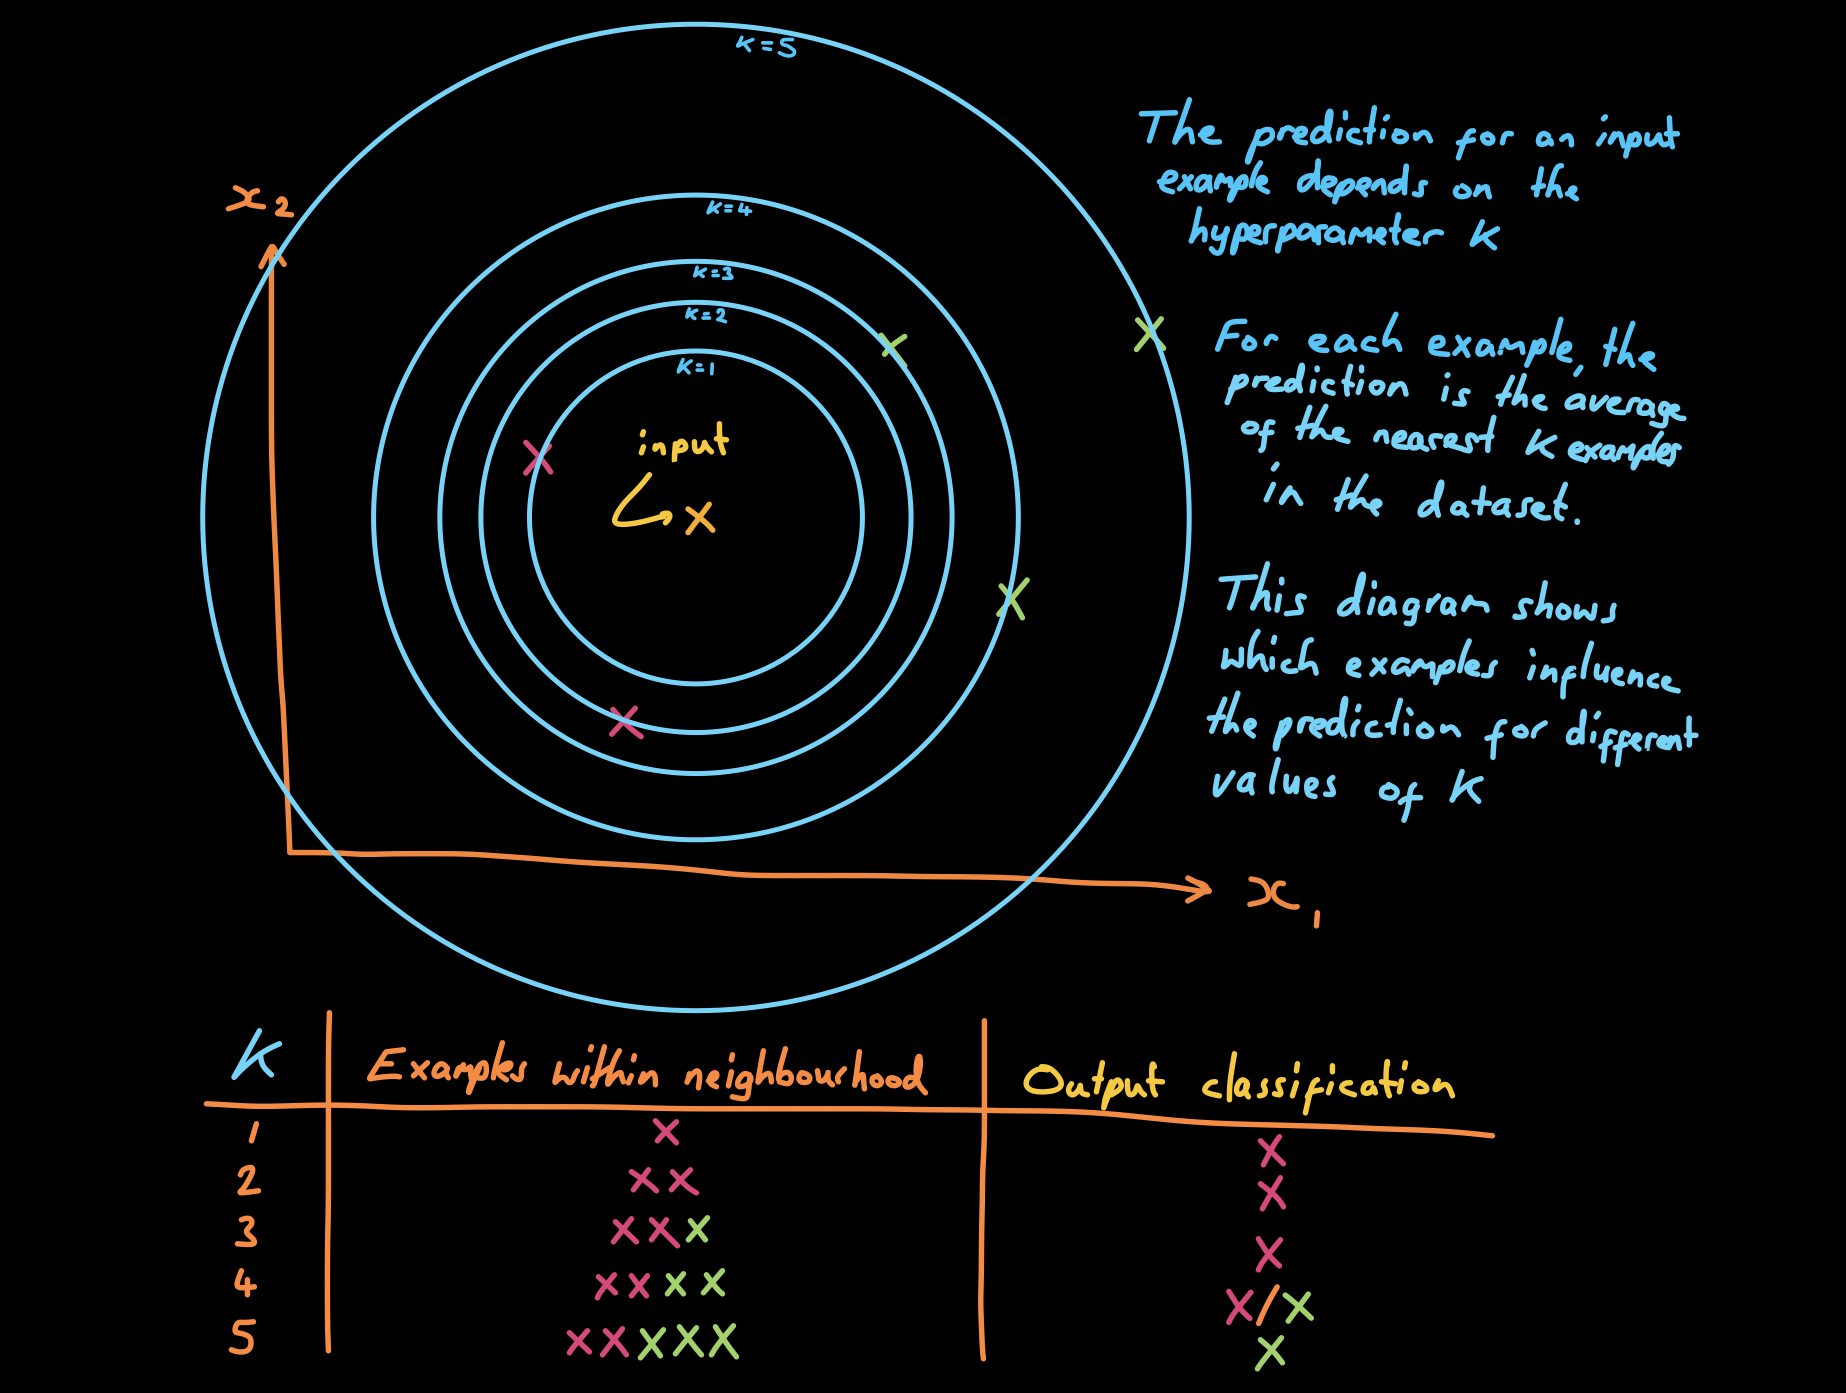 K=5
x2
K=4
K=3
K=2
K=1
input
x
The prediction for an input
example depends on the
hyperparameter K
For each example, the
prediction is the average
of the nearest K examples
in the dataset.
This diagram shows
which examples influence
the prediction for different
values of K
x1
K Examples within neighbourhood Output classification
1 x x
2 x x x
3 x x x x
4 x x x x x/x
5 x x x x x x